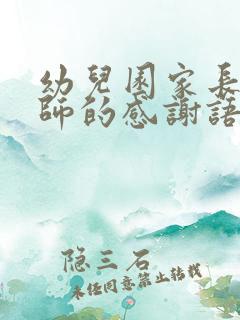 幼兒園家長
師的感謝語
隐三石
未经同意禁止转载